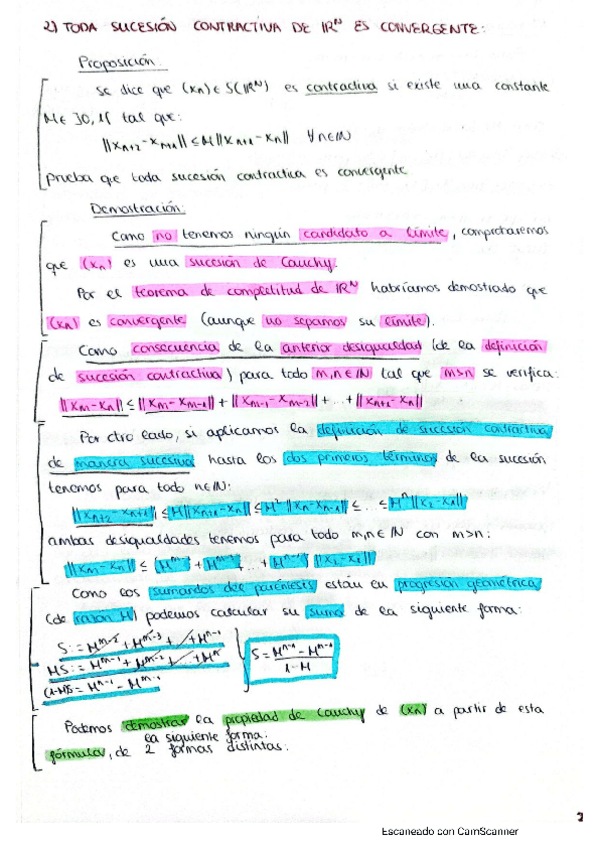 2) TODA SUCESIÓN CONTRACTIVA DE IRᴺ ES CONVERGENTE:
Proposición:
Se dice que (xn) ∈ S(IRᴺ) es contractiva si existe una constante
M ∈ ]0,1[ tal que:
||xn+2 - xn+1|| ≤ M||xn+1 - xn|| ∀n∈IN
Prueba que toda sucesión contractiva es convergente
Demostración:
Como no tenemos ningún candidato a límite, comprobaremos
que (xn) es una sucesión de Cauchy.
Por el teorema de completitud de IRᴺ habríamos demostrado que
(xn) es convergente (aunque no sepamos su límite).
Como consecuencia de la anterior desigualdad (de la definición
de sucesión contractiva) para todo m,n∈IN tal que m>n se verifica:
||xm - xn|| ≤ ||xm - xm-1|| + ||xm-1 - xm-2|| + ... + ||xn+1 - xn||
Por otro lado, si aplicamos la definición de sucesión contractiva
de manera sucesiva hasta los dos primeros términos de la sucesión
tenemos para todo n∈IN:
||xn+2 - xn+1|| ≤ M||xn+1 - xn|| ≤ M²||xn - xn-1|| ≤ ... ≤ Mⁿ||x2 - x1||
ambas desigualdades tenemos para todo m,n∈IN con m>n:
||xm - xn|| ≤ ... ||x2 - x1||
Como los sumandos del paréntesis están en progresión geométrica
(de razón M) podemos calcular su suma de la siguiente forma:
S := Mᵐ⁻² + Mᵐ⁻³ + ... + Mⁿ⁻¹
MS := Mᵐ⁻¹ + Mᵐ⁻² + ... + Mⁿ
(1-M)S = Mⁿ⁻¹ - Mᵐ⁻¹
S = Mⁿ⁻¹ - Mᵐ⁻¹ / 1 - M
Podemos demostrar la propiedad de Cauchy de (xn) a partir de esta
fórmula, de la siguiente forma:
de 2 formas distintas:
Escaneado con CamScanner